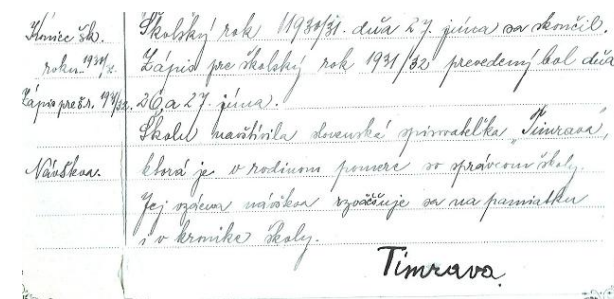 Konice šk.
roku 1930/31.
Zápis pre šr. 931/32.
Návšteva.
Školský rok 1930/31. dňa 27. júna sa skončil.
Zápis pre školský rok 1931/32 prevedený bol dňa
26. a 27. júna.
Školu navštívila slovenská spisovateľka "Timrava",
ktorá je v rodinnom pomere so správcom školy.
Jej vzácna návšteva zvečňuje sa na pamiatku
i v kronike školy.
Timrava